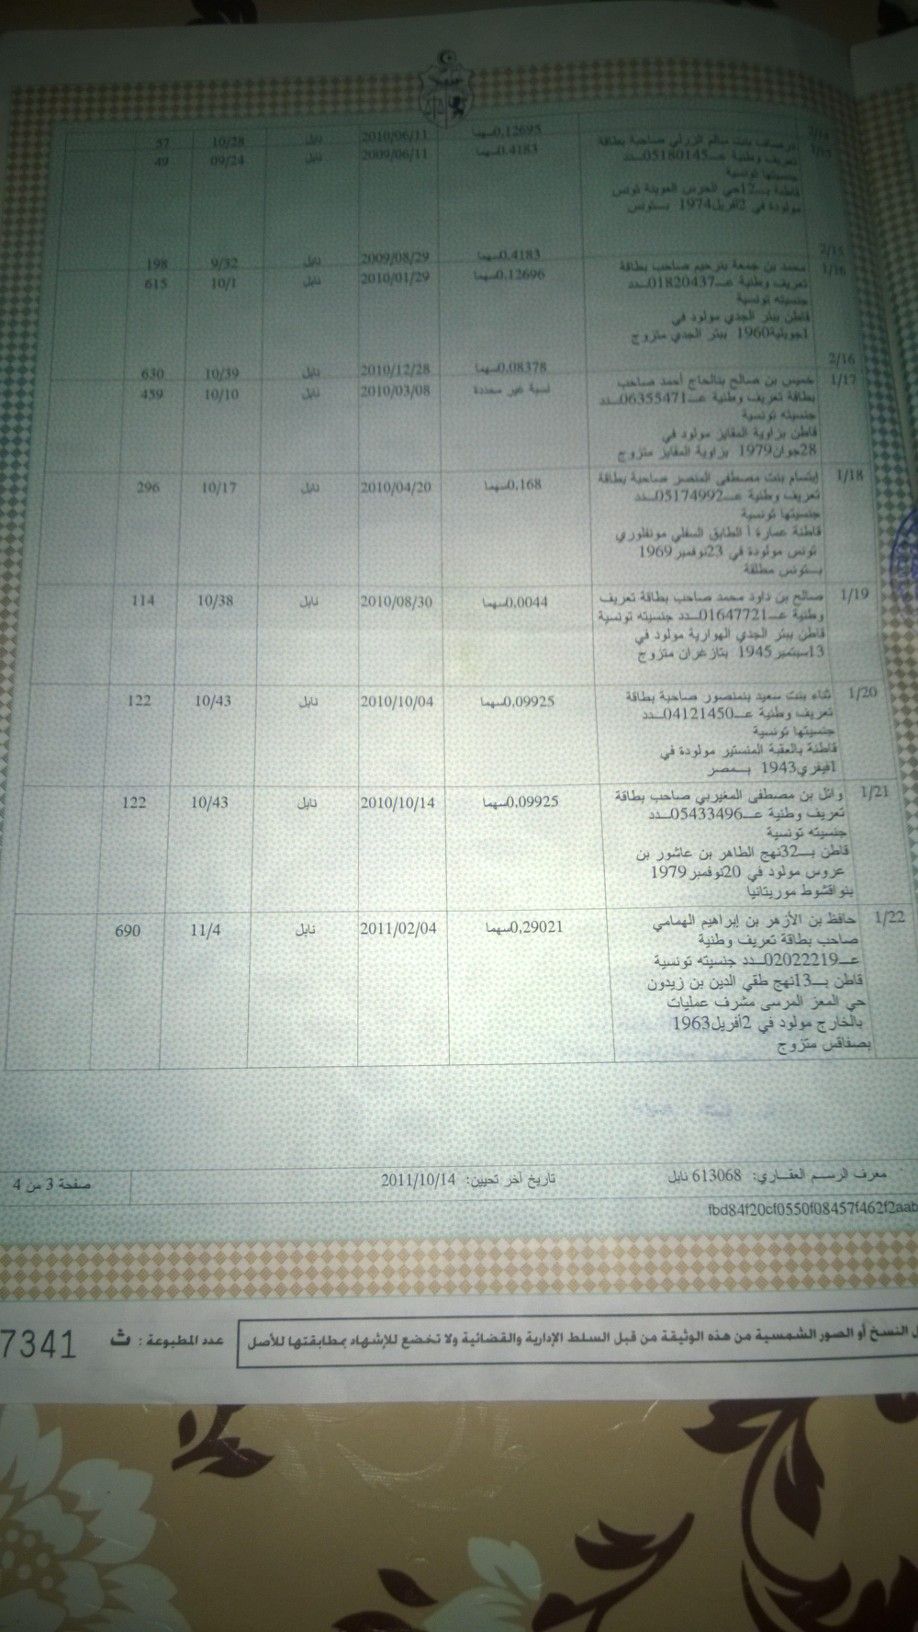 2/14 0,12695سهما 2010/06/11 نابل 10/28 57
1/15 درصاف بنت سالم الزرلي صاحبة بطاقة 0.4183سهما 2009/06/11 نابل 09/24 49
تعريف وطنية عـــ05180145ـــدد
جنسيتها تونسية
قاطنة بـــ12حي الحرس العوينة تونس
مولودة في 2أفريل1974 بـــتونس
2/15 0.4183سهما 2009/08/29 نابل 9/52 198
1/16 محمد بن جمعة بنرحيم صاحب بطاقة 0,12696سهما 2010/01/29 نابل 10/1 615
تعريف وطنية عـــ01820437ـــدد
جنسيته تونسية
قاطن ببئر الجدي مولود في
1جويلية1960 ببئر الجدي متزوج
2/16 0,08378سهما 2010/12/28 نابل 10/39 630
1/17 خميس بن صالح بنالحاج أحمد صاحب نسبة غير محددة 2010/03/08 نابل 10/10 459
بطاقة تعريف وطنية عـــ06355471ـــدد
جنسيته تونسية
قاطن بزاوية المقايز مولود في
28جوان1979 بزاوية المقايز متزوج
1/18 إبتسام بنت مصطفى المنصر صاحبة بطاقة 0,168سهما 2010/04/20 نابل 10/17 296
تعريف وطنية عـــ05174992ـــدد
جنسيتها تونسية
قاطنة عمارة أ الطابق السفلي مونفلوري
تونس مولودة في 23نوفمبر 1969
بـــتونس مطلقة
1/19 صالح بن داود محمد صاحب بطاقة تعريف 0,0044سهما 2010/08/30 نابل 10/38 114
وطنية عـــ01647721ـــدد جنسيته تونسية
قاطن ببئر الجدي الهوارية مولود في
13سبتمبر1945 بتازغران متزوج
1/20 ثناء بنت سعيد بنمنصور صاحبة بطاقة 0,09925سهما 2010/10/04 نابل 10/43 122
تعريف وطنية عـــ04121450ـــدد
جنسيتها تونسية
قاطنة بالعقبة المنستير مولودة في
1فيفري1943 بـــمصر
1/21 وائل بن مصطفى المغيربي صاحب بطاقة 0,09925سهما 2010/10/14 نابل 10/43 122
تعريف وطنية عـــ05433496ـــدد
جنسيته تونسية
قاطن بـــ32نهج الطاهر بن عاشور بن
عروس مولود في 20نوفمبر1979
بنواقشوط موريتانيا
1/22 حافظ بن الأزهر بن إبراهيم الهمامي 0,29021سهما 2011/02/04 نابل 11/4 690
صاحب بطاقة تعريف وطنية
عـــ02022219ـــدد جنسيته تونسية
قاطن بـــ13نهج طقي الدين بن زيدون
حي المعز المرسى مشرف عمليات
بالخارج مولود في 2أفريل1963
بصفاقس متزوج
معرف الرسم العقاري: 613068 نابل تاريخ آخر تحيين: 2011/10/14 صفحة 3 من 4
fbd84f20cf0550f08457f462f2aab
النسخ أو الصور الشمسية من هذه الوثيقة من قبل السلط الإدارية والقضائية ولا تخضع للإشهاد بمطابقتها للأصل عدد المطبوعة : ث 7341